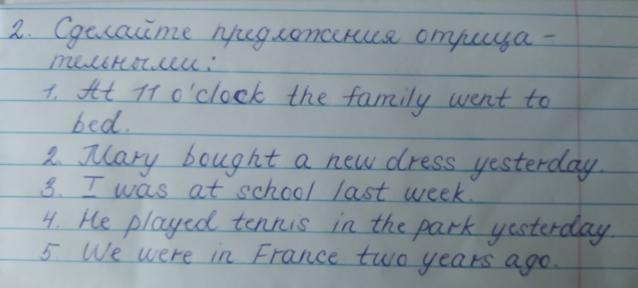 2. Сделайте предложения отрица-
тельными:
1. At 11 o'clock the family went to
bed.
2. Mary bought a new dress yesterday.
3. I was at school last week.
4. He played tennis in the park yesterday.
5. We were in France two years ago.